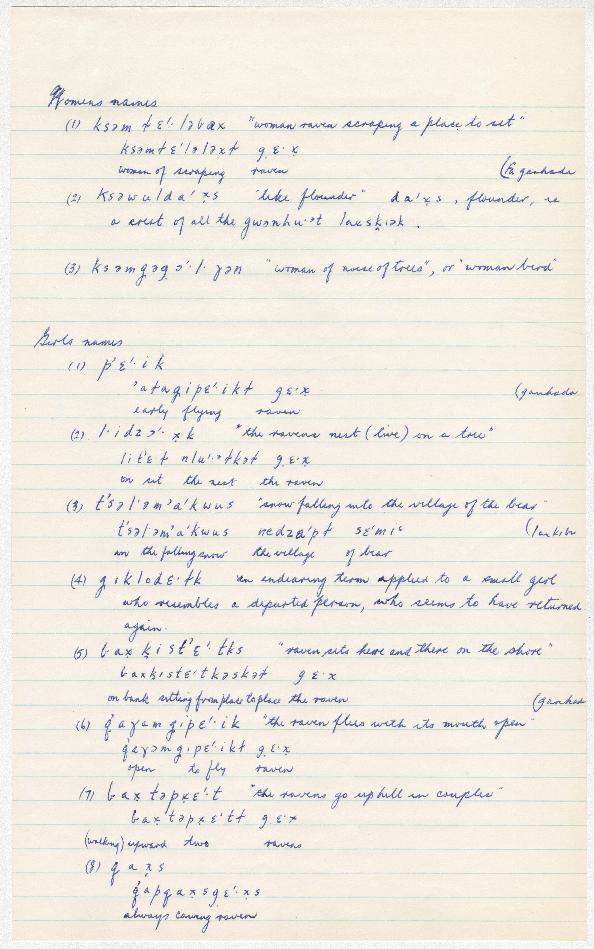 Womens names
(1) ksəm tɛ'·ləbax "woman raven scraping a place to sit"
ksəmtɛ'lələxt g̣·ɛ·x̣
women of scraping raven (Fa ganhada
(2) ksəwulda'x̣s "like flounder" da'x̣s, flounder, is
a crest of all the gwənhu'·ət laxsḳiək.
(3) ksəmg̣əg̣ɔ'·l·γən "woman of noise of trees", or "woman bird"
Girls names
(1) p'ɛ'·ik
'atag̣ipɛ'·ikt g̣ɛ·x̣ (ganhada
early flying raven
(2) l·idzɔ'·x̣k "the ravens nest (live) on a tree"
lit'ɛt nlu'·ətkət g̣ɛ·x̣
on sit the nest the raven
(3) t'səl·əm'a'kwus "snow falling into the village of the bear"
t'səl·əm'a'kwus nedza'pt sɛ'mi‘ (laxkibu
in the falling snow the village of bear
(4) g̣iklodɛ·tk an endearing term applied to a small girl
who resembles a departed person, who seems to have returned
again.
(5) baxḳist'ɛ'·tks "raven sits here and there on the shore"
baxḳistɛ'·tkəskət g̣ɛ·x
on bank sitting from place to place the raven (ganhada
(6) q̓aγamg̣ipɛ'·ik "the raven flies with its mouth open"
q̓aγəmg̣·ipɛ'·ikt g̣ɛ·x
open to fly raven
(7) bax təpxɛ'·t "the ravens go uphill in couples"
bax̣təpxɛ'tt g̣ɛ·x
(walking) upward two ravens
(8) qax̣s
q̓apqax̣sg̣ɛ'·x̣s
always cawing raven